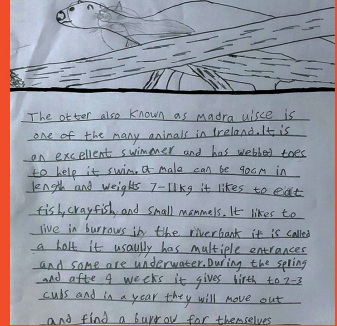 The otter also known as madra uisce is
one of the many animals in Ireland. It is
an excellent swimmer and has webbed toes
to help it swim. a male can be 90cm in
length and weighs 7-11kg it likes to eat
fish, crayfish, and small mammels. It likes to
live in burrows in the riverbank it is called
a holt it usaully has multiple entrances
and some are underwater. During the spring
and afte 9 weeks it gives birth to 2-3
cubs and in a year they will move out
and find a burrow for themselves